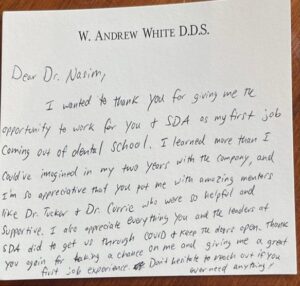 W. ANDREW WHITE D.D.S.
Dear Dr. Nasim,
I wanted to thank you for giving me the
opportunity to work for you & SDA as my first job
coming out of dental school. I learned more than I
could've imagined in my two years with the company, and
I'm so appreciative that you put me with amazing mentors
like Dr. Tucker & Dr. Currie who were so helpful and
supportive. I also appreciate everything you and the leaders at
SDA did to get us through COVID & keep the doors open. Thank
you again for taking a chance on me and giving me a great
first job experience. Don't hesitate to reach out if you
ever need anything!